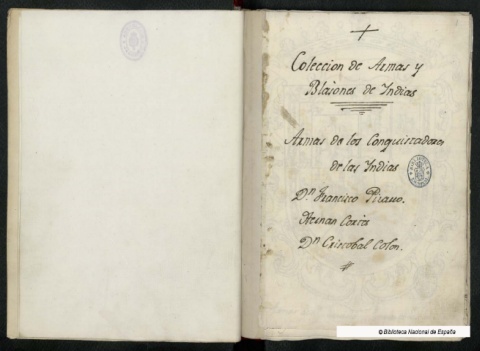 Coleccion de Armas y
Blasones de Indias
Armas de los Conquistadores
de las Indias
Dn. Francisco Pizarro.
Hernan Cortés
Dn Cristobal Colon.
© Biblioteca Nacional de España